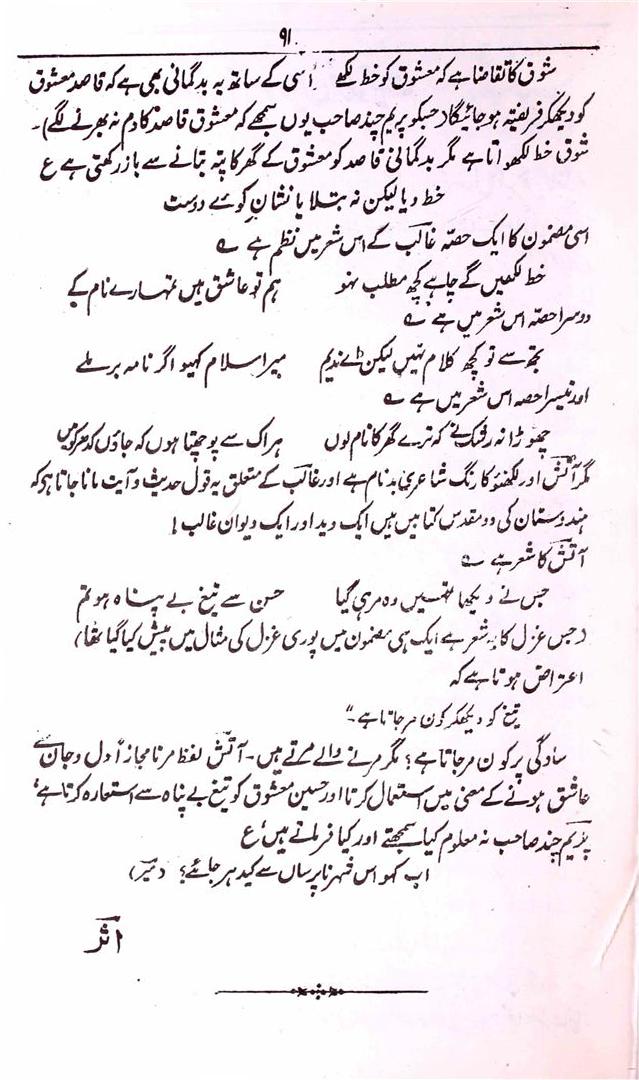 ۹۱
شوق کا تقاضا ہے کہ معشوق کو خط لکھے اسی کے ساتھ یہ بدگمانی بھی ہے کہ قاصد معشوق
کو دیکھکر فریفتہ ہو جائیگا (جسکو پریم چند صاحب یوں سمجھے کہ معشوق قاصد کا دم نہ بھرنے لگے)۔
شوق خط لکھواتا ہے مگر بدگمانی قاصد کو معشوق کے گھر کا پتہ بتانے سے باز رکھتی ہے ع
خط دیا لیکن نہ بتلایا نشانِ کوئے دوست
اسی مضمون کا ایک حصّہ غالبؔ کے اس شعر میں نظم ہے ؎
خط لکھیں گے چاہے کچھ مطلب نہو ہم تو عاشق ہیں تمہارے نام کے
دوسرا حصّہ اس شعر میں ہے ؎
تجھ سے تو کچھ کلام نہیں لیکن اے ندیم میرا سلام کہیو اگر نامہ بر ملے
اور تیسرا حصہ اس شعر میں ہے ؎
چھوڑا نہ رشک نے کہ ترے گھر کا نام لوں ہر اک سے پوچھتا ہوں کہ جاؤں کدھر کو میں
مگر آتشؔ اور لکھنؤ کا رنگ شاعری بدنام ہے اور غالبؔ کے متعلق یہ قول حدیث و آیت مانا جاتا ہو کہ
ہندوستان کی دو مقدس کتابیں ہیں ایک وید اور ایک دیوان غالب!
آتشؔ کا شعر ہے ؎
جس نے دیکھا تمھیں وہ مر ہی گیا حسن سے تیغ بے پناہ ہو تم
(جس غزل کا یہ شعر ہے ایک ہی مضمون میں پوری غزل کی مثال میں پیش کیا گیا تھا)
اعتراض ہوتا ہے کہ
تیغ کو دیکھکر کون مر جاتا ہے۔"
سادگی پر کون مر جاتا ہے؟ مگر مرنے والے مرتے ہیں۔ آتشؔ لفظ مرنا مجازاً دل و جان سے
عاشق ہونے کے معنی میں استعمال کرتا اور حسین معشوق کو تیغ بے پناہ سے استعارہ کرتا ہے،
پریم چند صاحب نہ معلوم کیا سمجھتے اور کیا فرماتے ہیں، ع
اب کہو اس شہر ناپرساں سے کیدھر جائے؟ (میرؔ)
اثرؔ